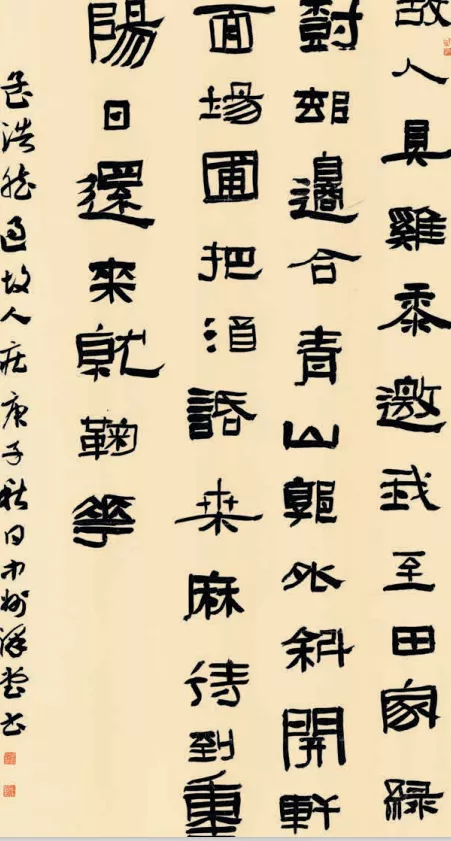 故人具雞黍邀我至田家綠
樹邨邊合青山郭外斜開軒
面場圃把酒話桑麻待到重
陽日還來就鞠華
孟浩然過故人莊庚子秋日中州澤堂書